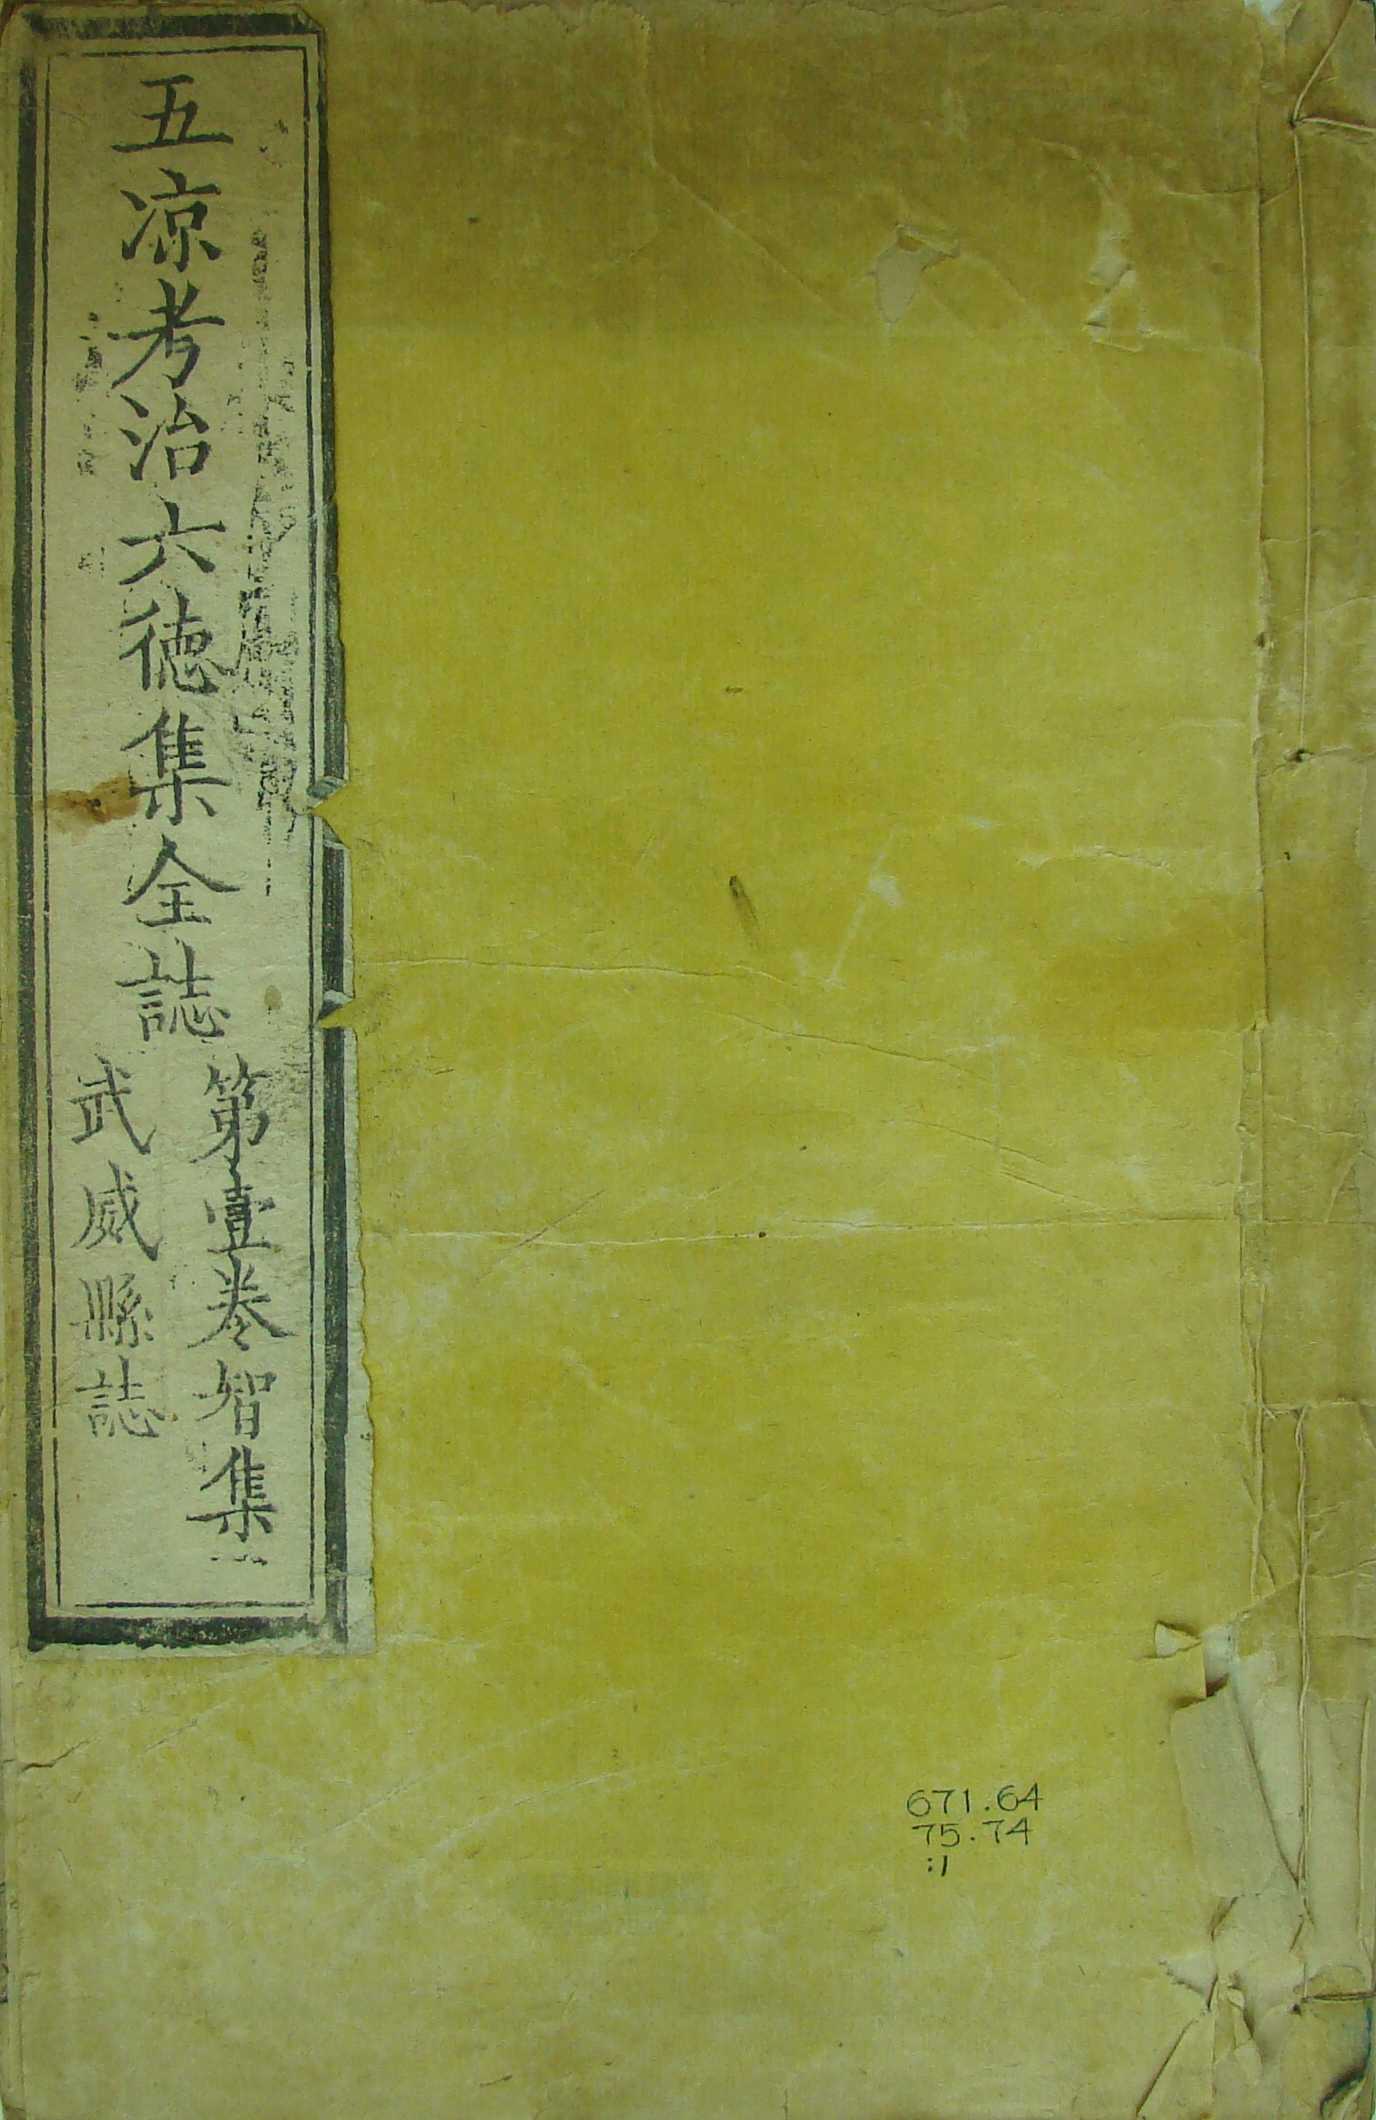 五凉考治六德集全誌
第壹卷智集
武威縣誌
671.64
75.74
:1